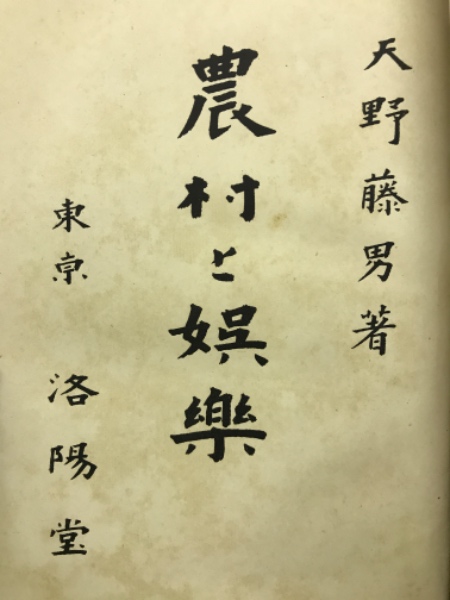 天野藤男著
農村と娯樂
東京 洛陽堂